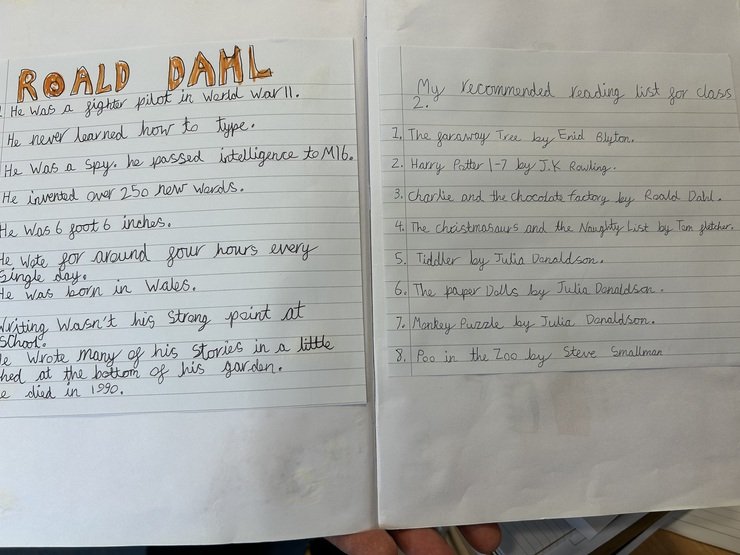 ROALD DAHL
He was a fighter pilot in World War II.
He never learned how to type.
He was a spy. he passed intelligence to M16.
He invented over 250 new words.
He was 6 foot 6 inches.
He wote for around four hours every
single day.
He was born in Wales.
Writing wasn't his strong point at
school.
He wrote many of his stories in a little
shed at the bottom of his garden.
He died in 1990.
My recommended reading list for class
2.
1. The faraway Tree by Enid Blyton.
2. Harry Potter 1-7 by J.K Rowling.
3. Charlie and the chocolate factory by Roald Dahl.
4. The christmasaurs and the Naughty List by Tom fletcher.
5. Tiddler by Julia Donaldson.
6. The paper Dolls by Julia Donaldson.
7. Monkey Puzzle by Julia Donaldson.
8. Poo in the Zoo by Steve Smallman